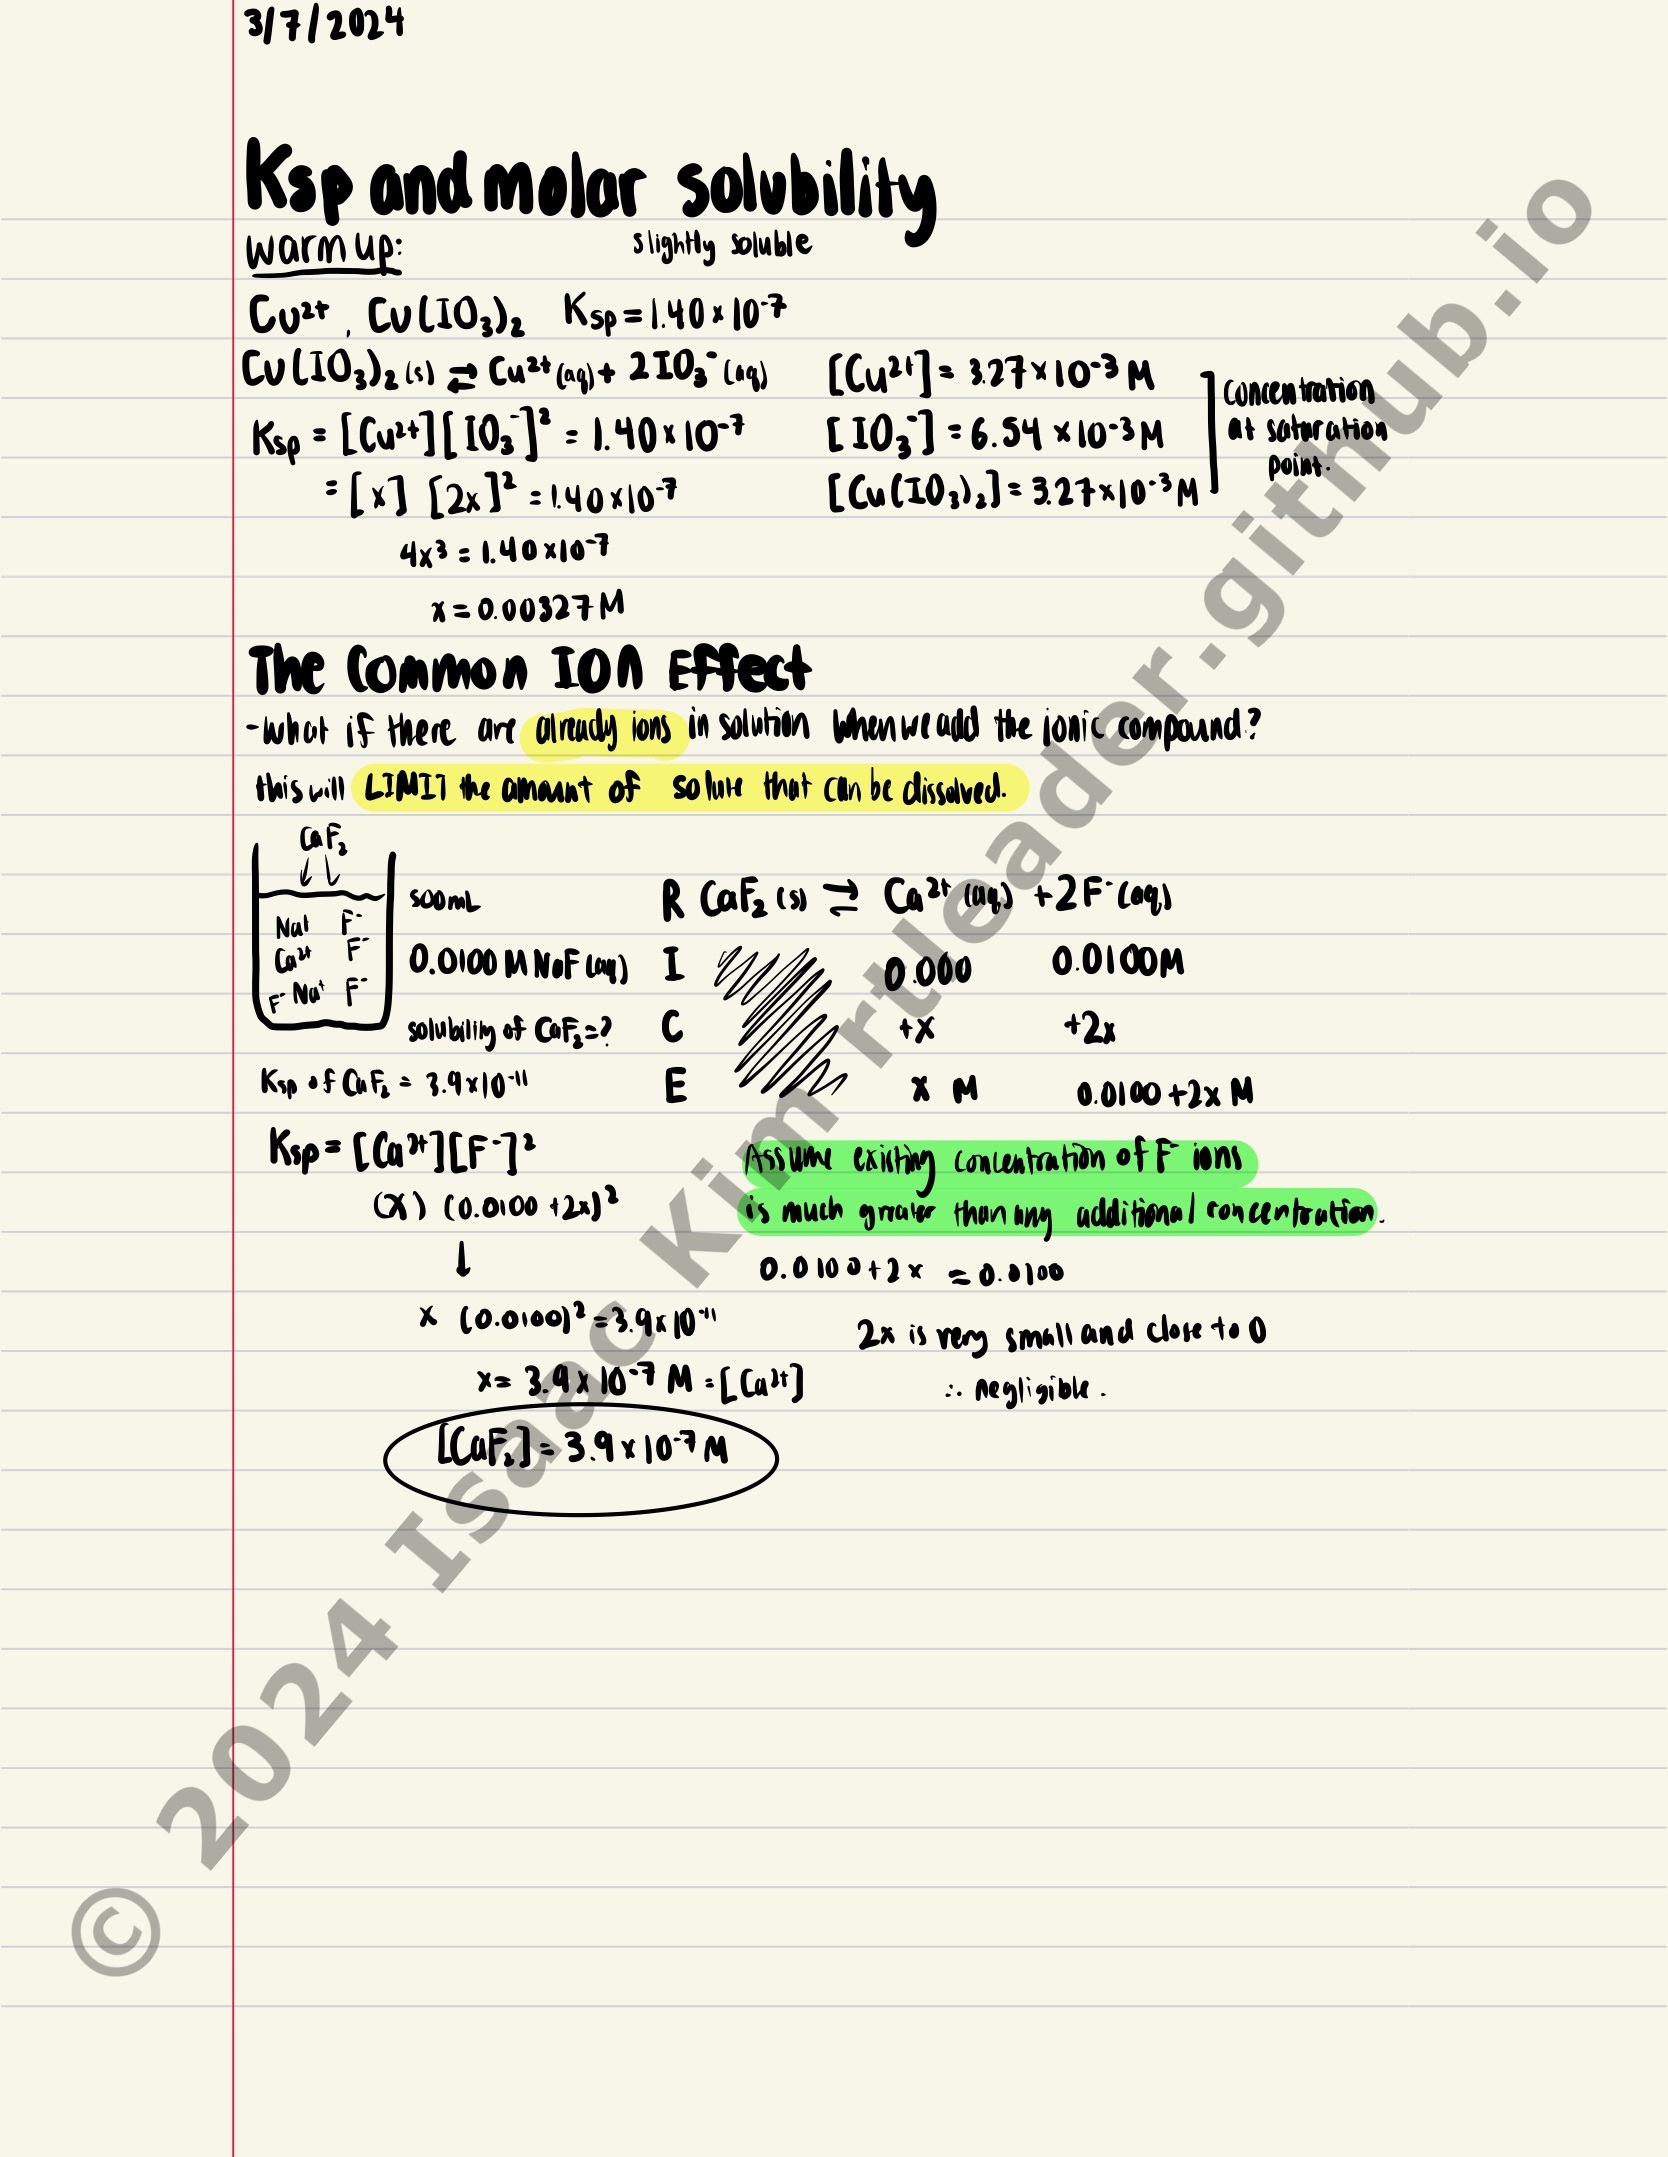 3/7/2024
Ksp and molar solubility
warm up:
slightly soluble
Cu²⁺, Cu(IO₃)₂ Ksp = 1.40 × 10⁻⁷
Cu(IO₃)₂(s) ⇌ Cu²⁺(aq) + 2IO₃⁻(aq)
Ksp = [Cu²⁺][IO₃⁻]² = 1.40 × 10⁻⁷
= [x] [2x]² = 1.40 × 10⁻⁷
4x³ = 1.40 × 10⁻⁷
x = 0.00327 M
[Cu²⁺] = 3.27 × 10⁻³ M
[IO₃⁻] = 6.54 × 10⁻³ M
[Cu(IO₃)₂] = 3.27 × 10⁻³ M
concentration
at saturation
point.
The Common ION Effect
- what if there are already ions in solution when we add the ionic compound?
this will LIMIT the amount of solute that can be dissolved.
CaF₂
Na⁺ F⁻
Ca²⁺ F⁻
F⁻ Na⁺ F⁻
500mL
0.0100 M NaF(aq)
solubility of CaF₂ = ?
Ksp of CaF₂ = 3.9 × 10⁻¹¹
R CaF₂(s) ⇌ Ca²⁺(aq) + 2F⁻(aq)
I 0.000 0.0100M
C +x +2x
E x M 0.0100 + 2x M
Ksp = [Ca²⁺][F⁻]²
(x) (0.0100 + 2x)²
↓
x (0.0100)² = 3.9 × 10⁻¹¹
x = 3.9 × 10⁻⁷ M = [Ca²⁺]
[CaF₂] = 3.9 × 10⁻⁷ M
Assume existing concentration of F⁻ ions
is much greater than any additional concentration.
0.0100 + 2x = 0.0100
2x is very small and close to 0
∴ negligible.
© 2024 Isaac Kim rtleader.github.io